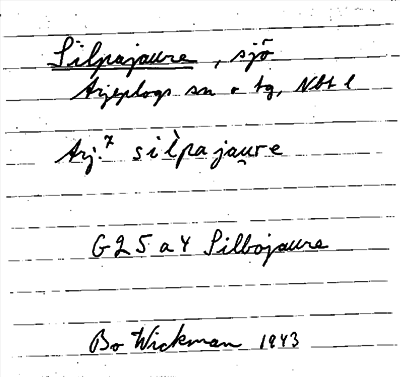 Silpajaure, sjö
Arjeplogs sn o tg, Nbt l
Arj.⁷ silpajaure
G25 a 4 Silbojaure
Bo Wickman 1943